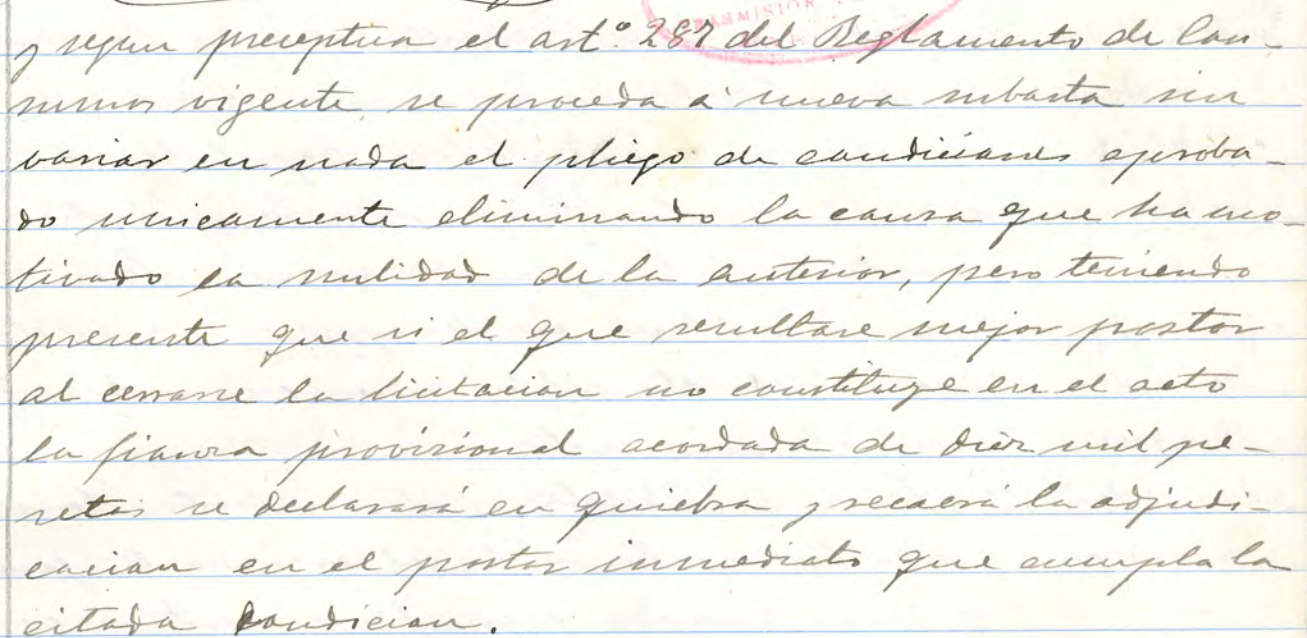 y segun preceptua el artº 287 del Reglamento de Con-
sumos vigente, se proceda á nueva subasta sin
variar en nada el pliego de condiciones aproba-
do unicamente eliminando la causa que ha mo-
tivado la nulidad de la anterior, pero teniendo
presente que si el que resultare mejor postor
al cerrarse la licitacion no constituye en el acto
la fianza provisional acordada de diez mil pe-
setas se declarará en quiebra y recaerá la adjudi-
cacion en el postor inmediato que cumpla la
citada condicion.